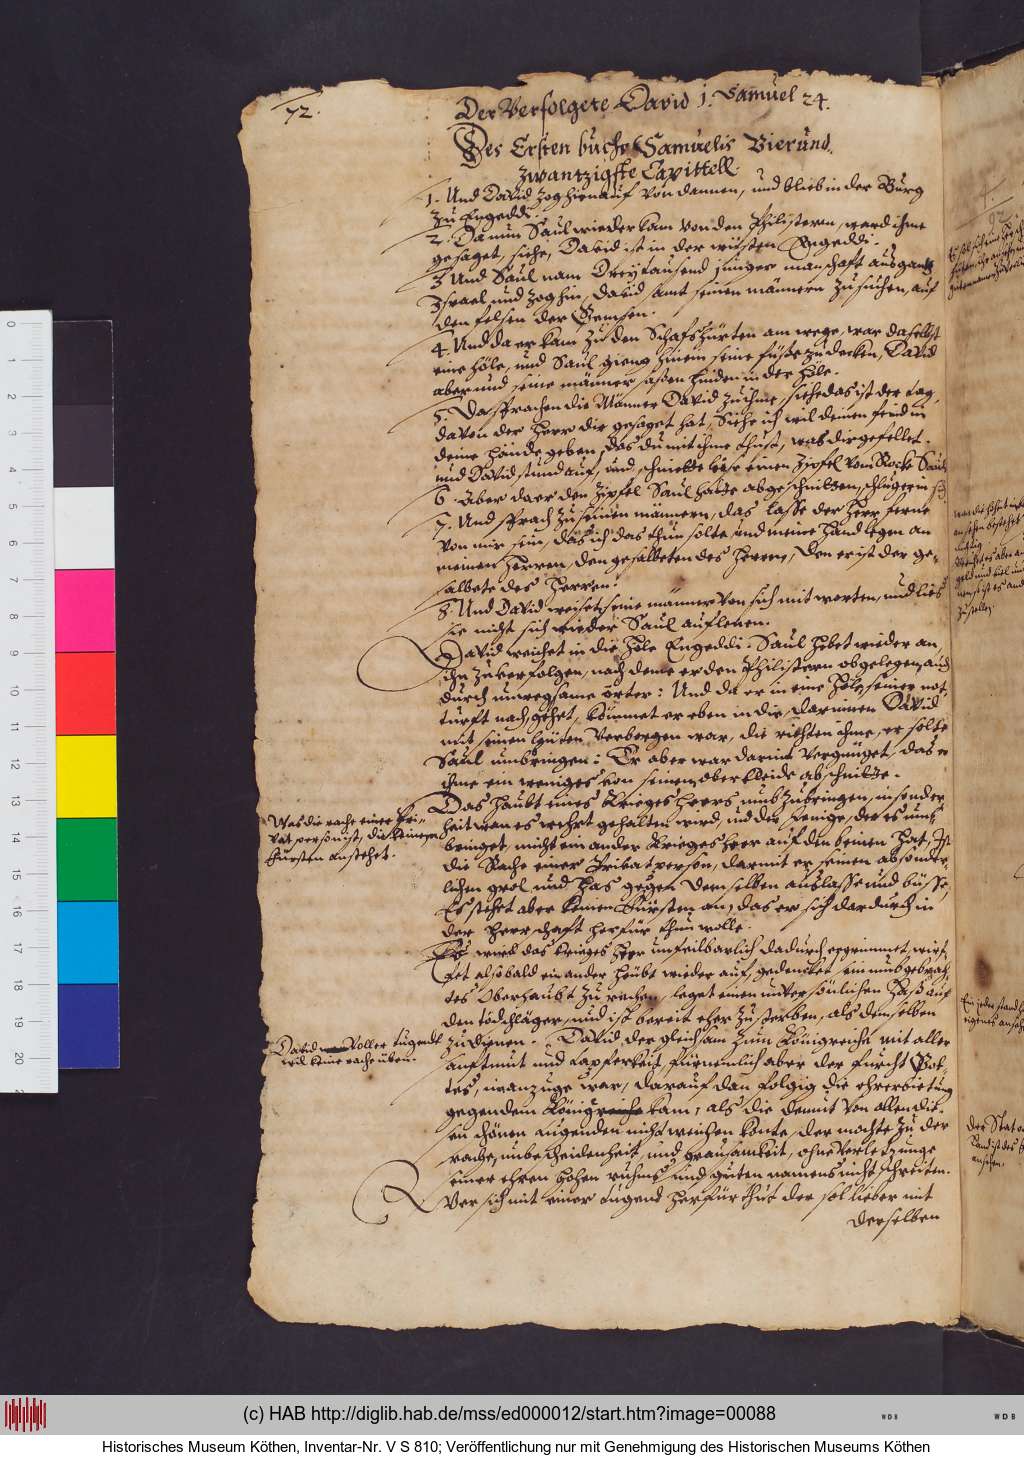 72.
Der Verfolgete David 1. Samuel 24.
Des Ersten buchs Samuelis Vierund
zwantzigste Capittell.
1. Und David zog hienauf von dannen, und blieb in der Burg
zu Engeddi.
2. Da nun Saul wieder kam von den Philistern, ward ihme
gesaget, siehe, David ist in der wüsten Engeddi.
3. Und Saul nam Dreytausend junger manschaft aus gantz
Israel, und zog hin, David samt seinen männern zu suchen, auf
den felsen der Gemsen.
4. Und da er kam zu den Schafshürten am wege, war daselbst
eine höle, und Saul gieng hinein seine füsse zu decken, David
aber und seine männer sassen hinden in der höle.
5. Da sprachen die Männer David zu ihme, siehe das ist der tag,
davon der Herr dir gesaget hat, Siehe ich wil deinen feind in
deine hände geben, das du mit ihme thust, was dir gefellet.
und David stund auf, und schneidte leise einen Zipfel vom Rocke Sauls
6. Aber da er den Zipfel Saul hatte abgeschnitten, schlug er in sich
7. Und sprach zu seinen männern, das lasse der Herr ferne
von mir sein, das ich das thun solte, und meine hand legen an
meinen Herren, den gesalbeten des Herren, den er ist der ge-
salbete des Herren.
8. Und David weiset seine männer von sich mit worten, und lies
sie nicht sich wieder Saul auflenen.
David weichet in die höle Engeddi. Saul hebet wieder an
ihn zu verfolgen, nach deme er den Philistern obgelegen, auch
durch unwegsame örter: Und da er in eine höle, seiner not-
turft nach, gehet, kömmet er eben in die, darinnen David
mit seinen leuten verborgen war, die riehten ihme, er solte
Saul umbringen: Er aber war darin vergnüget, das er
ihme ein weniges von seinem oberkleide abschnitte.
Das Haubt eines Krieges heers umbzubringen, insonder-
heit wan es wehrt gehalten wird, und der jenige, der es umb-
bringet, nicht ein ander Krieges heer auf den beinen hat, Ist
die Rache einer Privat person, darmit er seinen absonder-
lichen grol und has gegen demselben auslasse und büsse,
Es stehet aber keinen Fürsten an, das er sich dardurch in
der herrschaft herfür thun wolle.
Es wird das krieges heer unfeilbarlich dadurch ergrimmet, wirf-
fet alsobald ein ander heübt wieder auf, gedencket ein umbgebrach-
tes Oberhaubt zu rechen, leget einen unversönlichen haß auf
den todschläger, und ist bereit eher zu sterben, als demselben
zu dienen. David der gleichsam zum Königreiche mit aller
sanftmut und tapferkeit, fürnemlich aber der furcht Got-
tes, inanzuge war, darauf dan folgig die ehrerbietung
gegen dem König kam, als die demut von allen die-
sen schönen tugenden nicht weichen konte, der mochte zu der
rache, unbescheidenheit, und grausamkeit, ohne verletzunge
seiner ehren hohen ruhms, und guten namens nicht schreiten.
Wer sich mit einer tugend herfür thut der sol lieber mit
derselben
Was die rache einer Pri-
vat person ist, die keinem
Fürsten anstehet.
David voller tugend
wil keine rache üben.
(c) HAB http://diglib.hab.de/mss/ed000012/start.htm?image=00088
WDB
WDB
Historisches Museum Köthen, Inventar-Nr. V S 810; Veröffentlichung nur mit Genehmigung des Historischen Museums Köthen
0
1
2
3
4
5
6
7
8
9
10
11
12
13
14
15
16
17
18
19
20